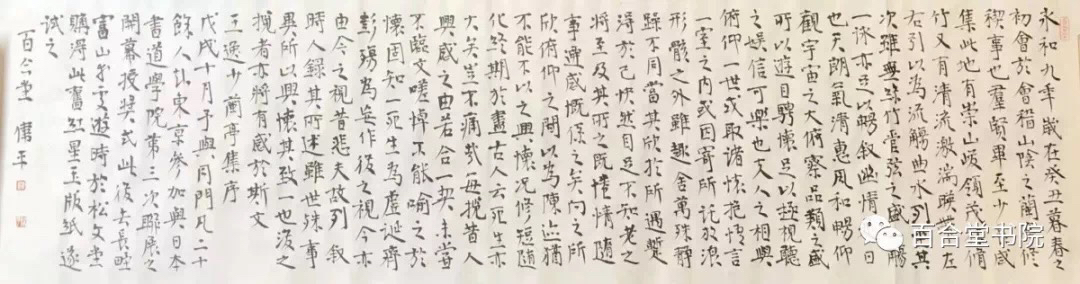 永和九年歲在癸丑暮春之
初會於會稽山陰之蘭修
禊事也羣賢畢至少長咸
集此地有崇山峻領茂修
竹又有清流激湍暎帶左
右引以為流觴曲水列其
次雖無絲竹管弦之盛觴
一詠亦足以暢叙幽情日
也天朗氣清惠風和暢仰
觀宇宙之大俯察品類之盛
所以遊目騁懷足以極視聽
之娛信可樂也夫人之相與
俯仰一世或取諸懷抱悟言
一室之內或因寄所託於浪
形骸之外雖趣舍萬殊靜
躁不同當其欣於所遇蹔
得於己快然自足不知老之
將至及其所之既惓情隨
事遷感慨係之矣向之所
欣俯仰之間以為陳迹猶
不能不以之興懷況修短隨
化終期於盡古人云死生亦
大矣豈不痛哉每攬昔人
興感之由若合一契未嘗
不臨文嗟悼不能喻之於
懷固知一死生為虛誕齊
彭殤為妄作後之視今亦
由今之視昔悲夫故列叙
時人錄其所述雖世殊事
異所以興懷其致一也後之
攬者亦將有感於斯文
王逸少蘭亭集序
戊戌十月予與同門凡二十
餘人赴東京參加與日本
書道學院第三次聯展之
開幕授奖式此後去長野
富山遊時於松文堂
購得此舊星版紙遂
試之
百合堂 平
百合堂书院